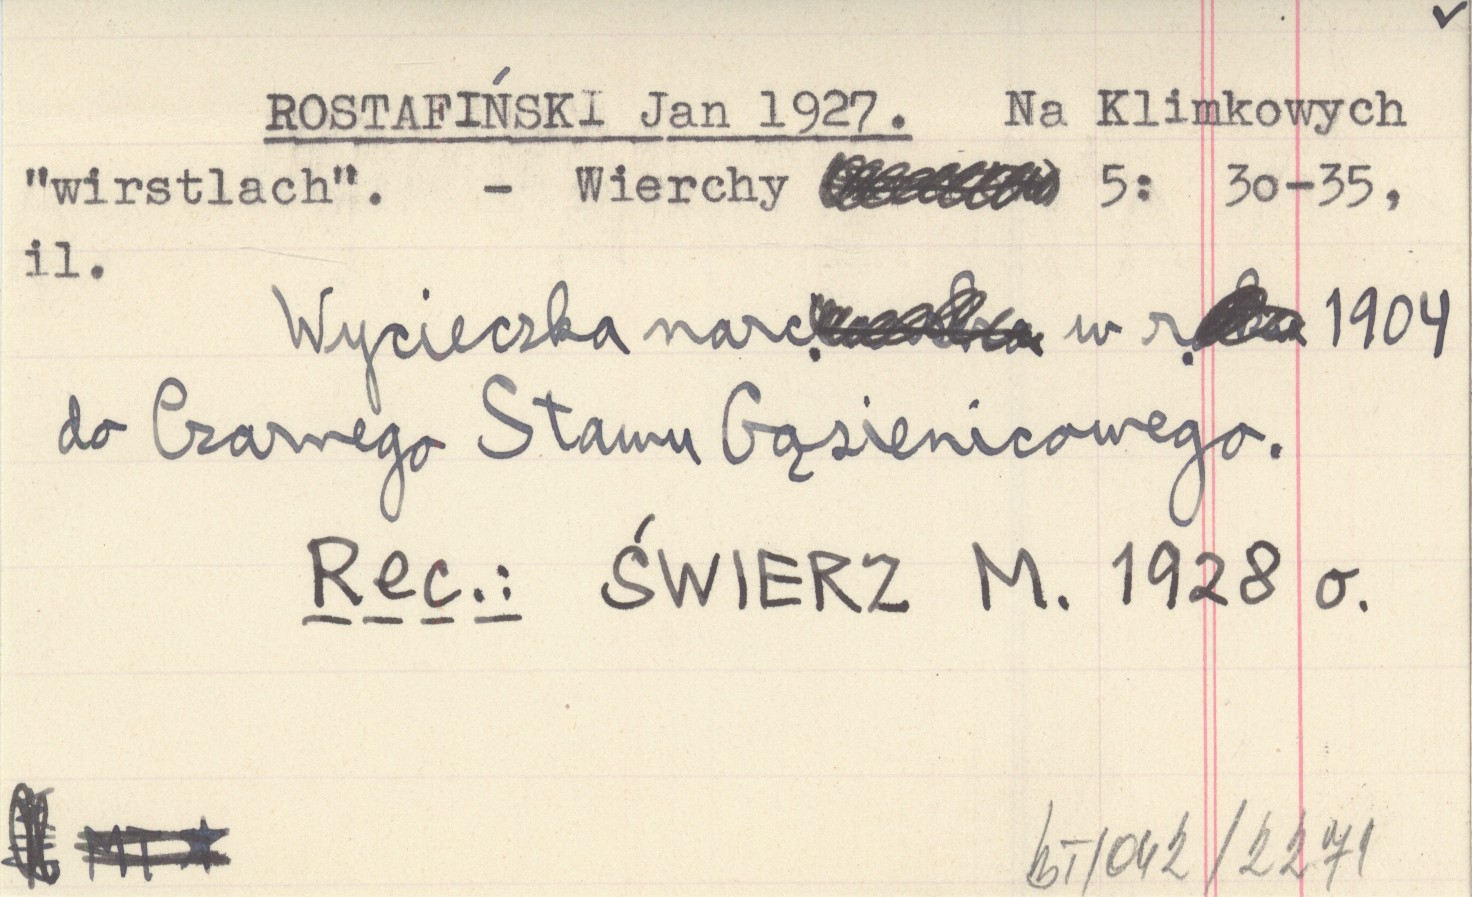 ROSTAFIŃSKI Jan 1927. Na Klimkowych
"wirstlach". - Wierchy 5: 30-35,
il.
Wycieczka narc. w r. 1904
do Czarnego Stawu Gąsienicowego.
Rec.: ŚWIERZ M. 1928 o.
MT
BT/042/2271